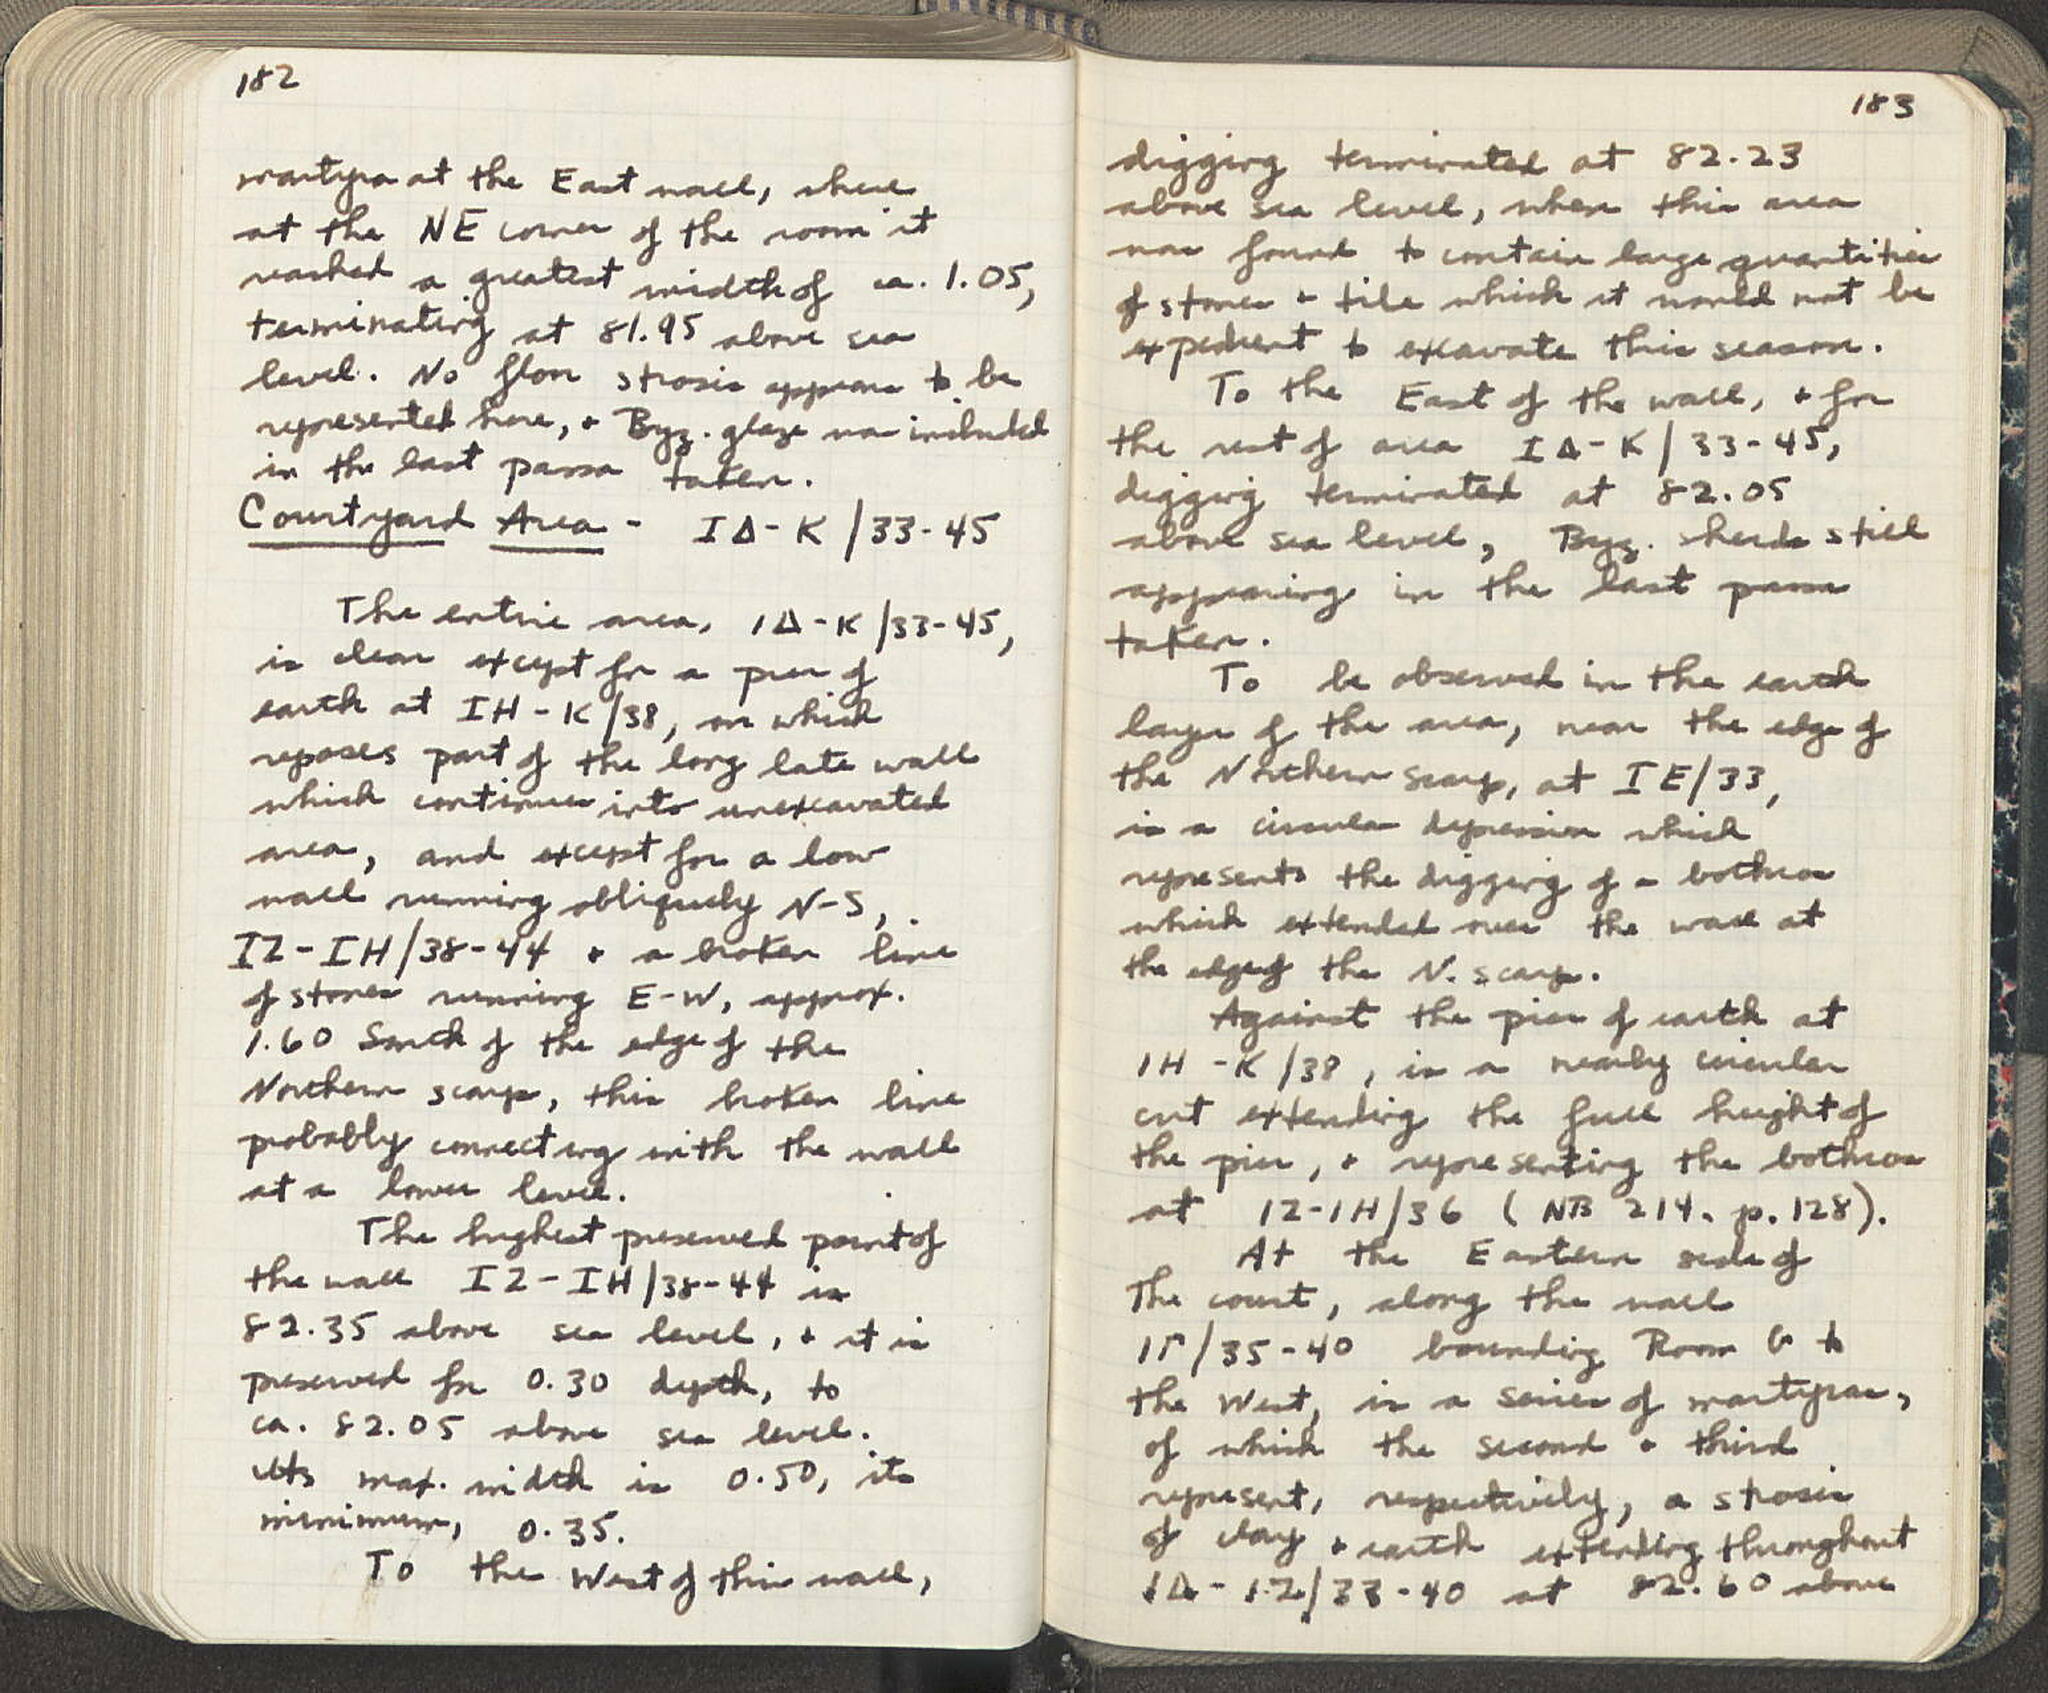 182
martyra at the East wall, where
at the NE corner of the room it
reached a greatest width of ca. 1.05,
terminating at 81.95 above sea
level. No floor strosis appears to be
represented here, + Byz. glaze was included
in the last passa taken.
Courtyard Area - ΙΔ-Κ/33-45
The entire area, ΙΔ-Κ/33-45,
is clear except for a pier of
earth at ΙΗ-Κ/38, on which
reposes part of the long late wall
which continues into unexcavated
area, and except for a low
wall running obliquely N-S,
ΙΖ-ΙΗ/38-44 + a broken line
of stones running E-W, approx.
1.60 South of the edge of the
Northern scarp, this broken line
probably connecting with the wall
at a lower level.
The highest preserved point of
the wall ΙΖ-ΙΗ/38-44 is
82.35 above sea level, + it is
preserved for 0.30 depth, to
ca. 82.05 above sea level.
Its max. width is 0.50, its
minimum, 0.35.
To the West of this wall,
183
digging terminated at 82.23
above sea level, when this area
was found to contain large quantities
of stones + tile which it would not be
expedient to excavate this season.
To the East of the wall, + for
the rest of area ΙΔ-Κ/33-45,
digging terminated at 82.05
above sea level, Byz. sherds still
appearing in the last passa
taken.
To be observed in the earth
layer of the area, near the edge of
the Northern scarp, at ΙΕ/33,
is a circular depression which
represents the digging of a bothros
which extended over the wall at
the edge of the N. scarp.
Against the pier of earth at
ΙΗ-Κ/38, is a nearly circular
cut extending the full height of
the pier, + representing the bothros
at ΙΖ-ΙΗ/36 (NB 214, p.128).
At the Eastern side of
the court, along the wall
ΙΓ/35-40 bounding Room G to
the West, is a series of martyras,
of which the second + third
represent, respectively, a strosis
of clay + earth extending throughout
ΙΔ-ΙΖ/33-40 at 82.60 above